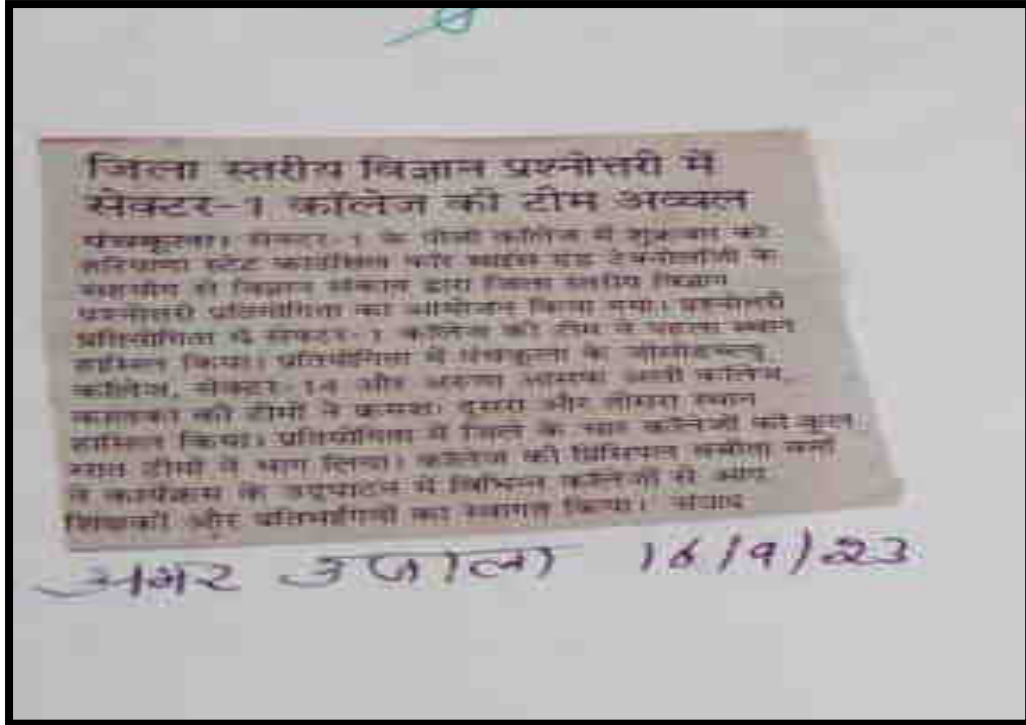 जिला स्तरीय विज्ञान प्रश्नोत्तरी में
सेक्टर-1 कॉलेज की टीम अव्वल
पंचकूला। सेक्टर-1 के पीजी कॉलेज में शुक्रवार को
हरियाणा स्टेट काउंसिल फॉर साइंस एंड टेक्नोलॉजी के
सहयोग से विज्ञान संकाय द्वारा जिला स्तरीय विज्ञान
प्रश्नोत्तरी प्रतियोगिता का आयोजन किया गया। प्रश्नोत्तरी
प्रतियोगिता में सेक्टर-1 कॉलेज की टीम ने पहला स्थान
हासिल किया। प्रतियोगिता में पंचकूला के जीसीडब्ल्यू
कॉलेज, सेक्टर-14 और अरुणा आसफ अली कॉलेज,
कालका की टीमों ने क्रमशः दूसरा और तीसरा स्थान
हासिल किया। प्रतियोगिता में जिले के सात कॉलेजों की कुल
सात टीमों ने भाग लिया। कॉलेज की प्रिंसिपल
ने कार्यक्रम के उद्घाटन में विभिन्न कॉलेजों से आए
शिक्षकों और प्रतिभागियों का स्वागत किया। संवाद
अमर उजाला 16/9/23